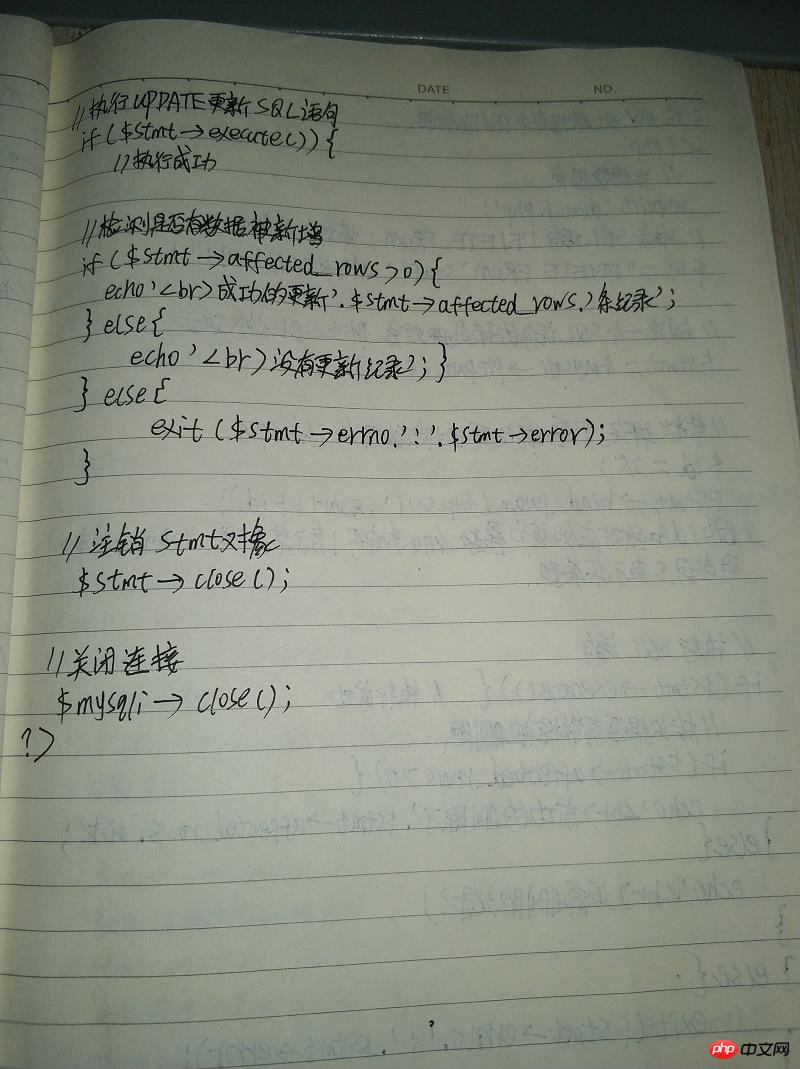 DATE NO.
//执行UPDATE更新SQL语句
if($stmt->execute()){
//执行成功
//检测是否有数据被新增
if($stmt->affected_rows>0){
echo'<br>成功的更新'.$stmt->affected_rows.'条纪录';
}else{
echo'<br>没有更新纪录';}
}else{
exit($stmt->errno.':'.$stmt->error);
}
//注销stmt对象
$stmt->close();
//关闭连接
$mysqli->close();
?>
php 中文网